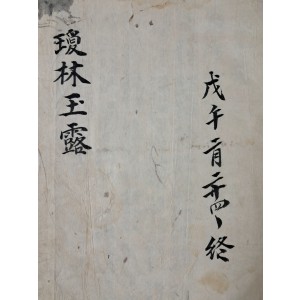 戊午二月卄四丶終
瓊林玉露